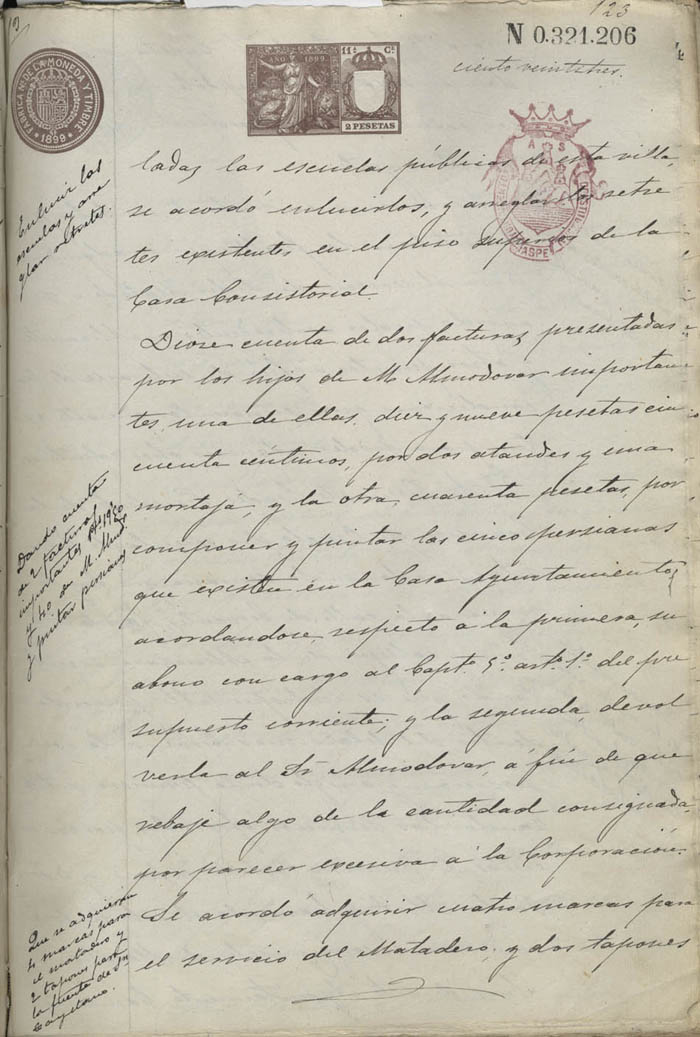 123
N 0.321.206
ciento veintitres.
FABRICA NAL DE LA MONEDA Y TIMBRE
1899
AÑO 1899
11ª Cª
2 PESETAS
A S
ladas las escuelas públicas de esta villa,
se acordó enlucirlos, y arreglar los retre
tes existentes en el piso superior de la
Casa Consistorial.
Diose cuenta de dos facturas presentadas
por los hijos de M. Almodovar importan-
tes, una de ellas, diez y nueve pesetas cin-
cuenta céntimos, por dos ataudes y una
mortaja, y la otra, cuarenta pesetas, por
componer y pintar las cinco persianas
que existen en la Casa Ayuntamiento,
acordandose, respecto á la primera, su
abono con cargo al Captº. 5º. artº. 1º. del pre
supuesto corriente; y la segunda, devol
verla al Sr. Almodovar, á fin de que
rebaje algo de la cantidad consignada,
por parecer excesiva á la Corporación.
Se acordó adquirir cuatro marcas para
el servicio del Matadero; y dos tapones
Enlucir las
escuelas y arre
glar retretes.
Dando cuenta
de 2 facturas
importantes
y 40 de M. Almodr.
y pintar persianas
Que se adquieran
4 marcas para
el matadero y
2 tapones para
la fuente de Sn.
Cayetano.